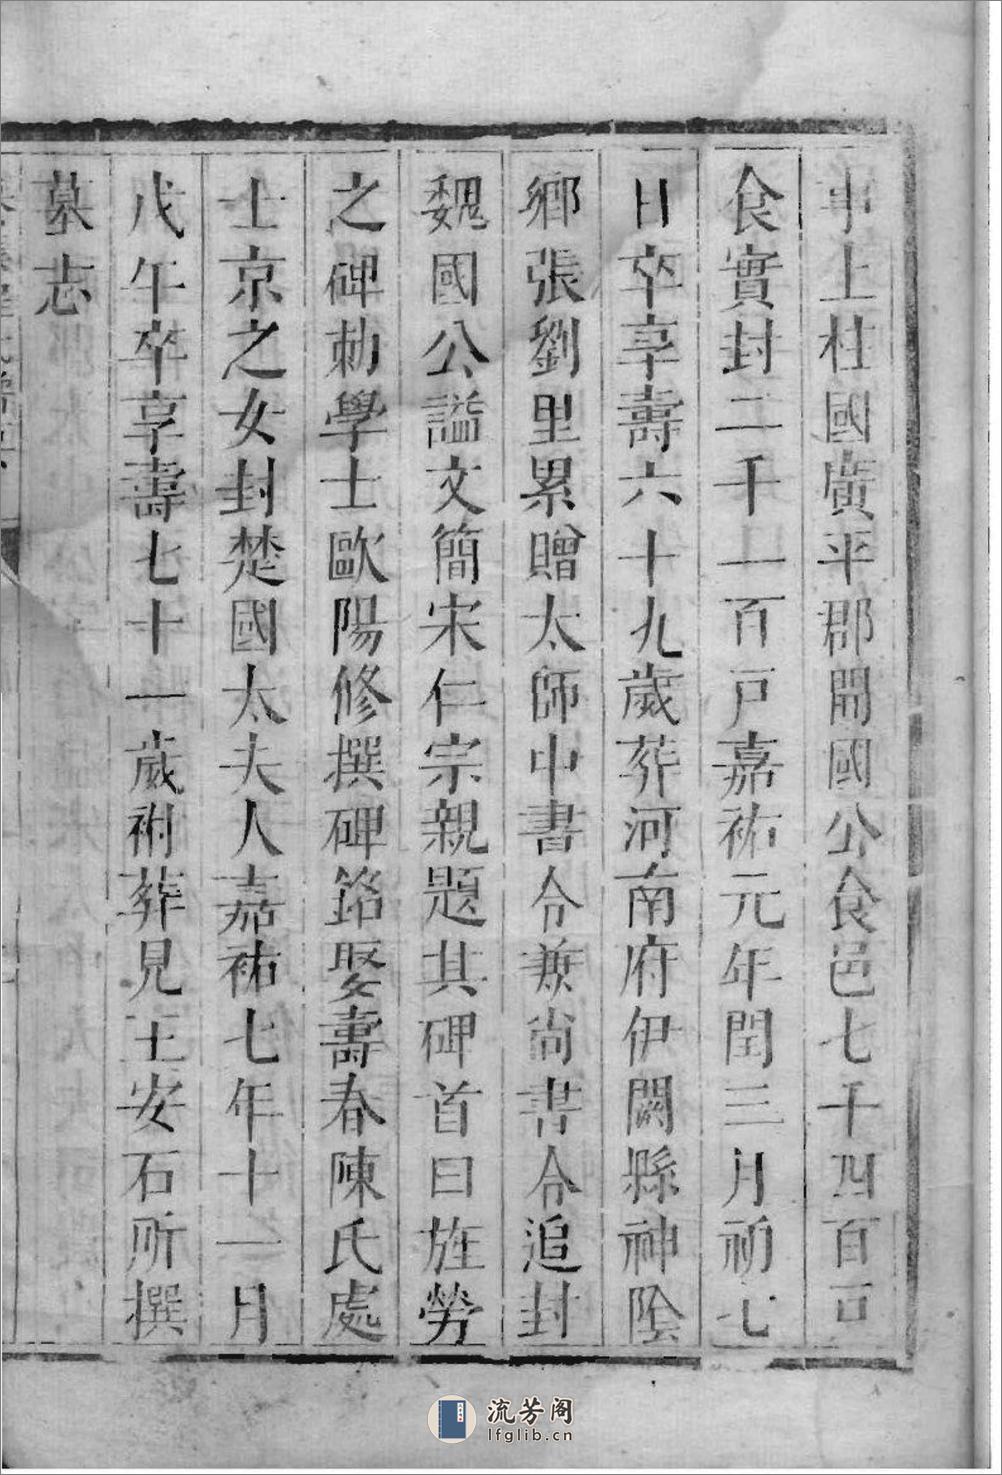 事上柱國廣平郡開國公食邑七千四百戶
食實封二千一百戶嘉祐元年閏三月初七
日卒享壽六十九歲葬河南府伊闕縣神陰
鄉張劉里累贈太師中書令兼尚書令追封
魏國公謚文簡宋仁宗親題其碑首曰旌勞
之碑勅學士歐陽修撰碑銘娶壽春陳氏處
士京之女封楚國太夫人嘉祐七年十一月
戊午卒享壽七十一歲祔葬見王安石所撰
墓志
流芳阁
lfglib.cn